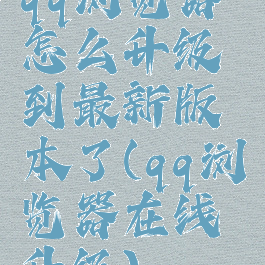 qq浏览器
怎么升级
到最新版
本了(qq浏
览器在线
升级)